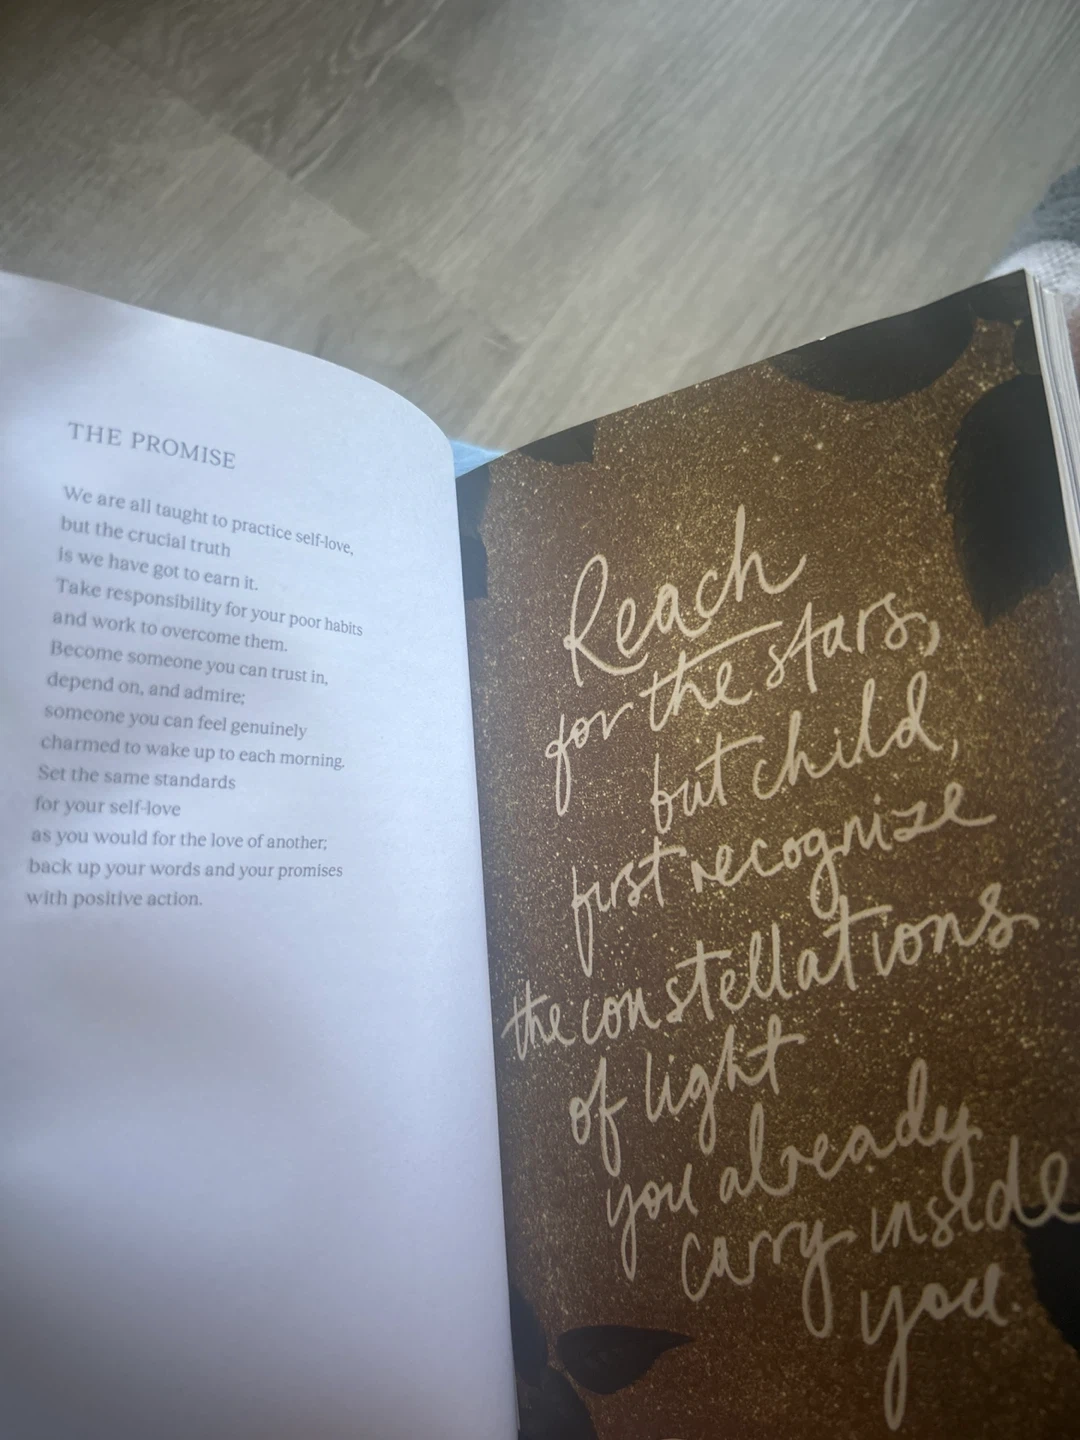 THE PROMISE
We are all taught to practice self-love,
but the crucial truth
is we have got to earn it.
Take responsibility for your poor habits
and work to overcome them.
Become someone you can trust in,
depend on, and admire;
someone you can feel genuinely
charmed to wake up to each morning.
Set the same standards
for your self-love
as you would for the love of another;
back up your words and your promises
with positive action.
Reach
for the stars,
but child,
first recognize
the constellations
of light
you already
carry inside
you.